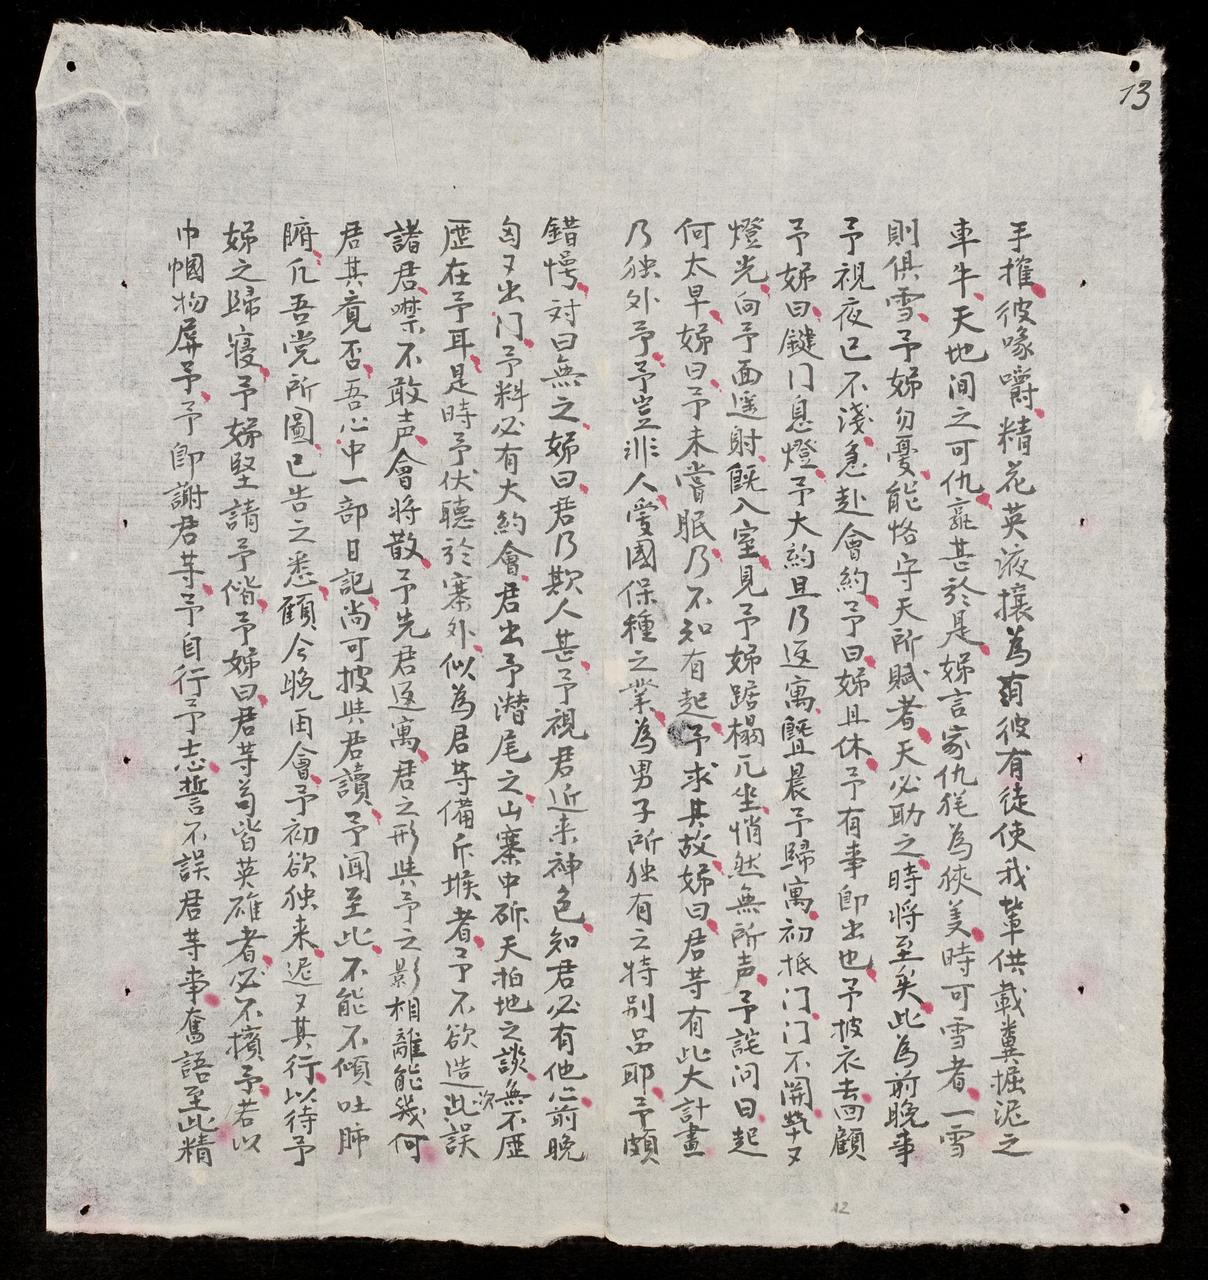 13
手摧彼喙嚼精花英液攘為彼有徒使我輩供載糞掘泥之
車牛天地间之可仇孰甚於是娣言家仇㲦為俠美時可雪者一雪
則俱雪予娣勿憂能恪守天所賦者天必助之時將至矣此為前晚事
予視夜已不淺急赴會約予曰娣且休予有事即出也予披衣去回顧
予娣曰鍵门息燈予大約旦乃返寓旣旦晨予歸寓初抵门门不開㷀又
燈光向予面遥射旣入室見予娣踞榻兀坐悄然無所声予詫问曰起
何太早娣曰予未嘗眠乃不知有起予求其故娣曰君䒭有此大計畫
乃独外予予豈非人愛國保種之業為男子所独有之特别品耶予頗
錯愕対曰無之娣曰君乃欺人甚予視君近来神色知君必有他心前晚
匈又出门予料必有大約會君出予潛尾之山寨中斫天拍地之談無不歴
歴在予耳是時予伏聽於寨外似為君䒭備斥堠者予不欲造次誤
諸君噤不敢声會將散予先君返寓君之形與予之影相離能幾何
君其竟否吾心中一部日記尚可披與君讀予闻至此不能不傾吐肺
腑凡吾党所圖已告之悉顧今晚再會予初欲独来迟又其行以待予
娣之歸寢予娣堅請予偕予娣曰君䒭苟皆英雄者必不擯予若以
巾幗物屏予予即謝君䒭予自行予志誓不誤君䒭事奮語至此精
12